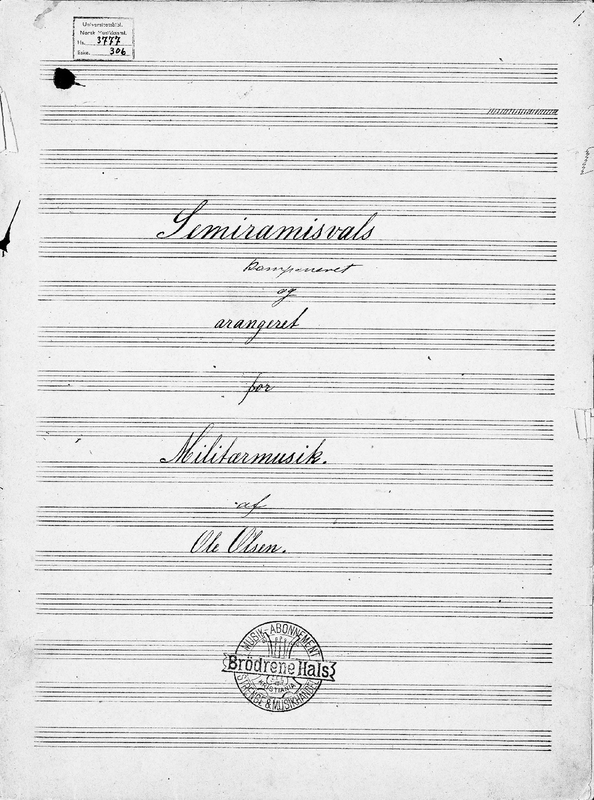 Universitetsbibl.
Norsk Musikksaml.
Hs. 3777
306
1.
Semiramisvals
komponeret
og
arangeret
for
Militærmusik.
af
Ole Olsen.
MUSIK-ABONNEMENT
Brödrene Hals
KRISTIANIA
STRENGE & MUSIKHANDEL